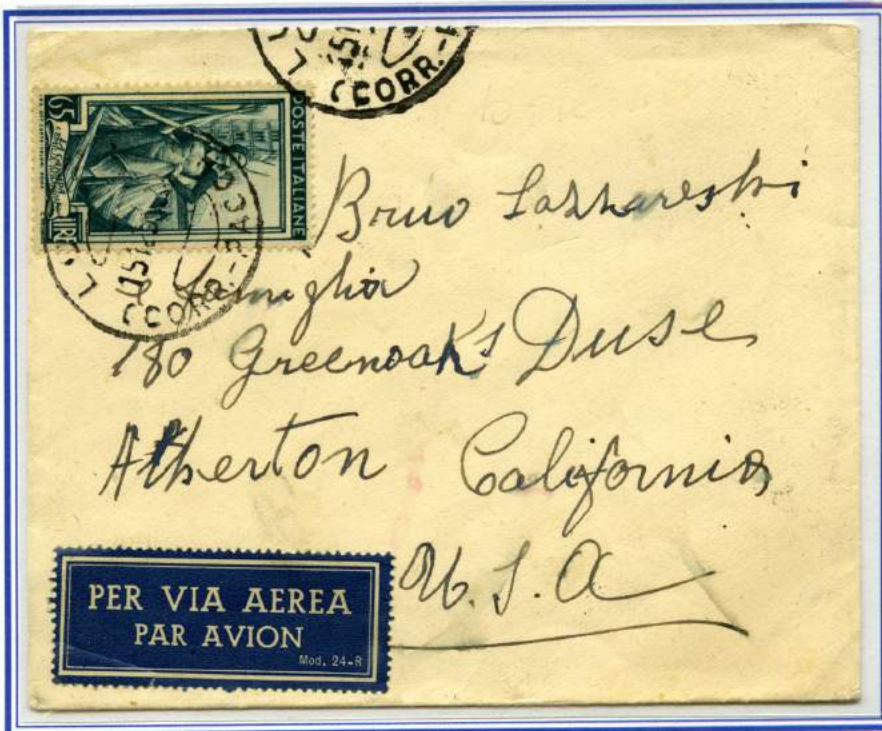 (CORR.-
POSTE ITALIANE
65
LIRE
LUCCA
(CORR.-PACCHI)
Bruno Lazzareschi
e famiglia
180 Greenoaks Duse
Atherton California
U.S.A
PER VIA AEREA
PAR AVION
Mod. 24-R